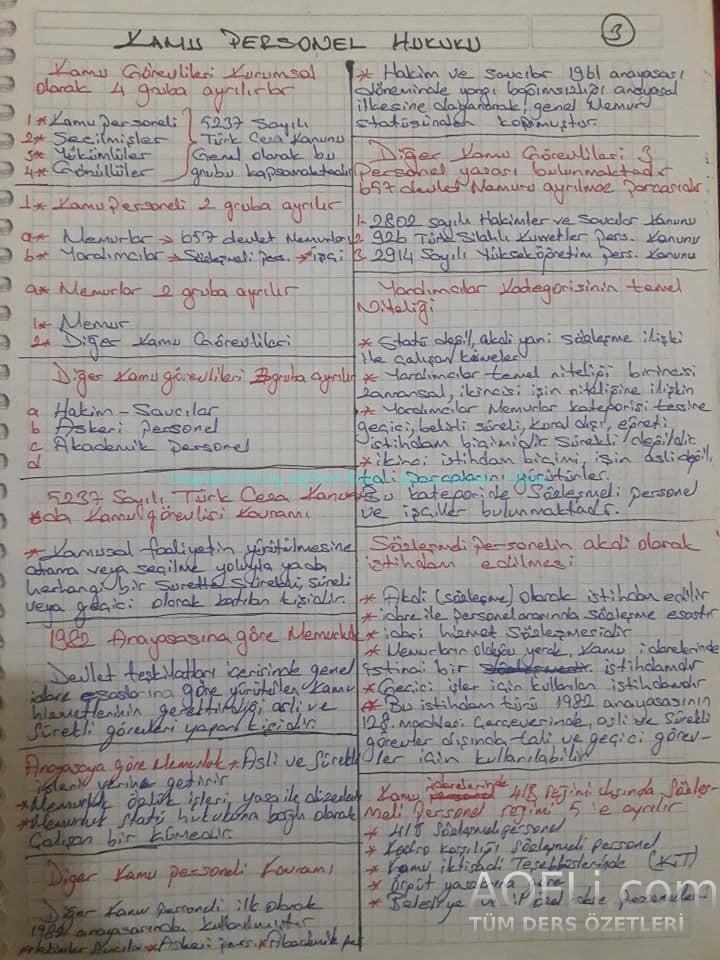 3
KAMU PERSONEL HUKUKU
Kamu Görevlileri Kurumsal
olarak 4 gruba ayrılırlar
1* Kamu personeli
2* Seçilmişler
3* Yükümlüler
4* Gönüllüler
5237 Sayılı
Türk Ceza Kanunu
Genel olarak bu
grubu kapsamaktadır
1* Kamu Personeli 2 gruba ayrılır
a* Memurlar → 657 devlet Memurları
b* Yardımcılar → Sözleşmeli Pers. → işçi
a* Memurlar 2 gruba ayrılır
1* Memur
2* Diğer Kamu Görevlileri
Diğer Kamu görevlileri 3 gruba ayrılır
a Hakim - Savcılar
b Askeri Personel
c Akademik Personel
d
5237 Sayılı Türk Ceza Kanu
*da Kamu görevlisi Kavramı
* Kamusal faaliyetin yürütülmesine
atama veya seçilme yoluyla yada
herhangi bir surette sürekli, süreli
veya geçici olarak katılan kişidir.
1982 Anayasasına göre Memurluk
Devlet teşkilatları içerisinde genel
idare esaslarına göre yürütülen kamu
hizmetlerinin gerektirdiği asli ve
sürekli görevleri yapan kişidir.
Anayasaya göre Memurluk * Asli ve sürekli
işleri yerine getirir
* Memurluk özlük işleri, yasa ile düzenlen
* Memurluk statü hukukuna bağlı olarak
Çalışan bir kümedir.
Diğer Kamu personeli Kavramı
Diğer Kamu Personeli ilk olarak
1982 anayasasında kullanılmıştır
* Askeri pers. * Akademik per
* Hakim ve savcılar 1961 anayasası
döneminde yargı bağımsızlığı anayasal
ilkesine dayanarak, genel Memur
statüsünden kopmuştur.
Diğer Kamu Görevlileri 3
personel yasası bulunmaktadır
657 devlet Memuru ayrılmaz parçasıdır.
1- 2802 sayılı Hakimler ve Savcılar Kanunu
2 926 Türk Silahlı Kuvvetler Pers. Kanunu
3 2914 Sayılı Yükseköğretim Pers. Kanunu
Yardımcılar Kategorisinin temel
Niteliği
* Statü değil, akdi yani sözleşme ilişki
ile çalışan kümeler
* Yardımcılar temel niteliği birincisi
zamansal, ikincisi işin niteliğine ilişkin
* Yardımcılar Memurlar kategorisi tersine
geçici, belirli süreli, kural dışı, eğreti
istihdam biçimidir sürekli değildir
* ikinci istihdam biçimi, işin asli değil,
tali parçalarını yürütürler.
* Bu kategoride sözleşmeli personel
ve işçiler bulunmaktadır.
Sözleşmeli personelin akdi olarak
istihdam edilmesi
* Akdi (sözleşme) olarak istihdam edilir
* idare ile personel arasında sözleşme esastır
* idari hizmet sözleşmesidir
* Memurların olduğu yerde, Kamu idarelerinde
istinai bir istihdamdır
* Geçici işler için kullanılan istihdamdır
* Bu istihdam türü 1982 anayasasının
128. maddesi çerçeverinde, asli ve sürekli
görevler dışında, tali ve geçici görev-
ler için kullanılabilir
Kamu idarelerinde 4/B rejimi dışında sözleş-
meli Personel rejimi 5'e ayrılır
* 4/B Sözleşmeli personel
* Kadro karşılığı sözleşmeli personel
* Kamu iktisadi Teşebbüslerinde (KİT)
* Örgüt yasalarına göre
* Belediye ve il özel idare
AOFLi.com
TÜM DERS ÖZETLERİ